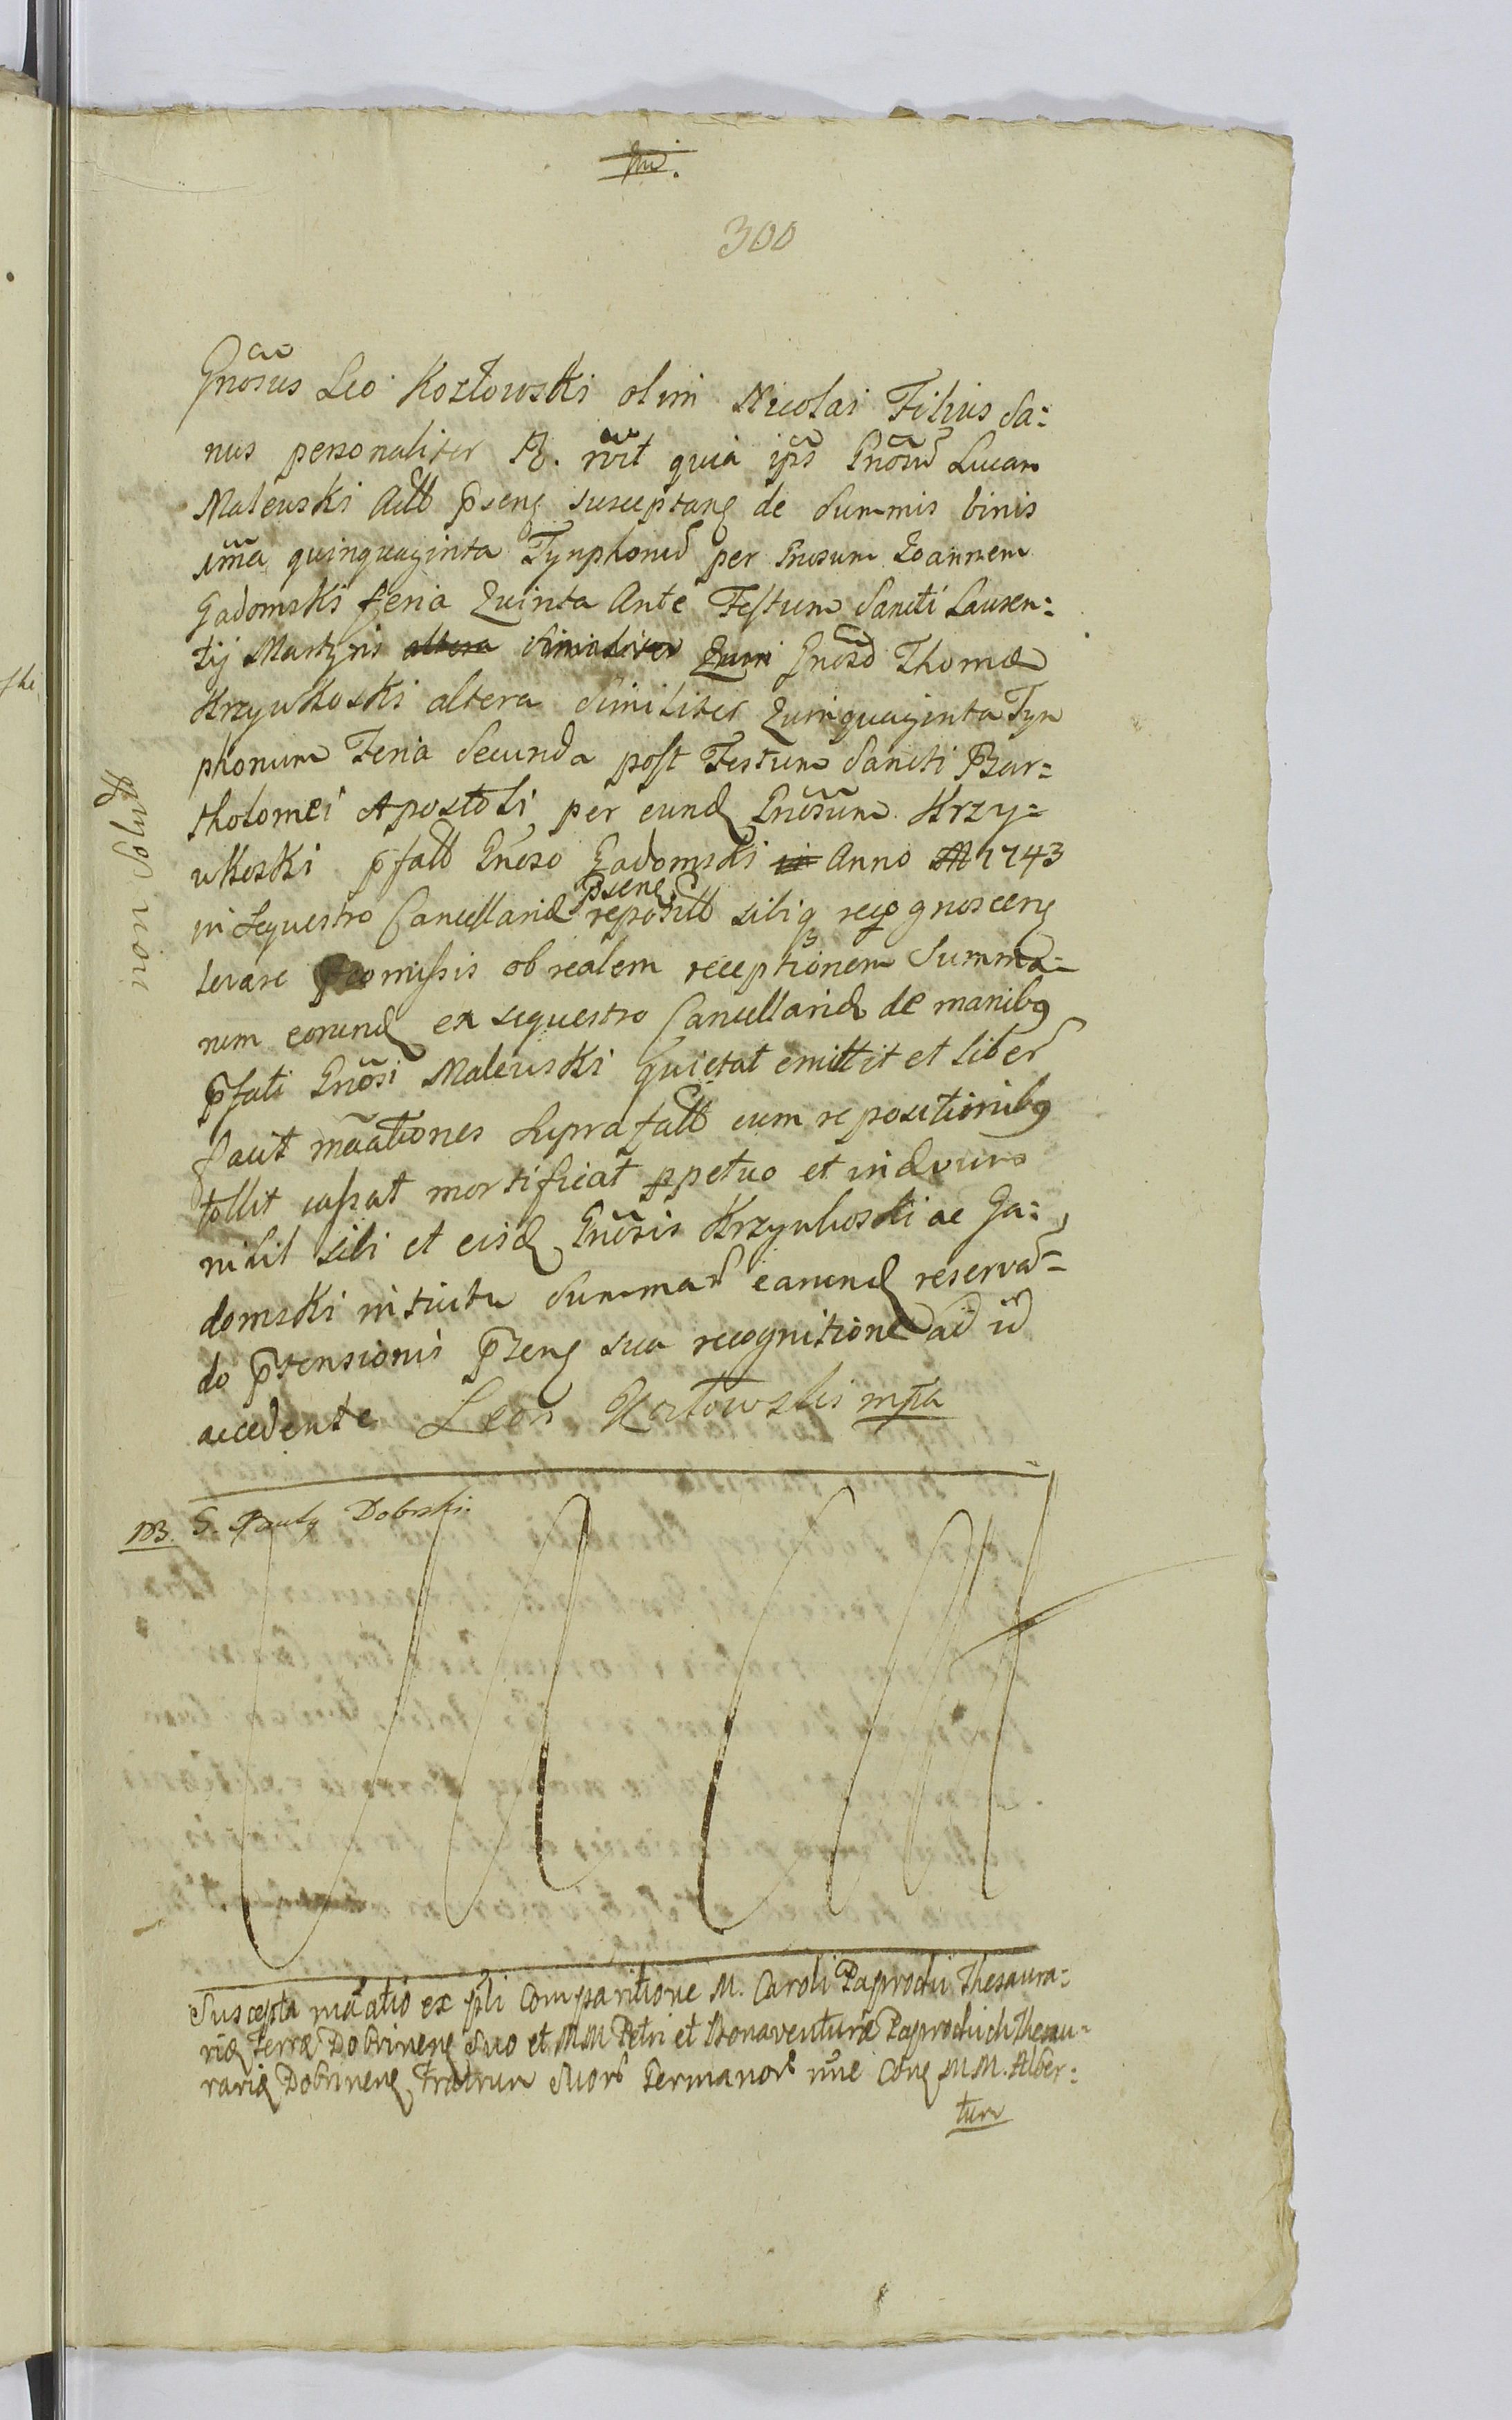 300
Gnosus Leo Kozłowski olim Nicolai Filius Sa=
nus personaliter R. rcvit quia ips Gnosū Lucam
Malewski Act̃ p̃sen̨ susceptan̨ de Summis binis
una quinquaginta Tynphonũ per Gnosum Joannem
Gadomski feria Quinta Ante Festum Sancti Lauren=
tij Martyris altera similiter Quin Gnoso Thomæ
Krzywkoski altera similiter Quinquaginta Tyn
phonum Feria Secunda post Festum Sancti Bar=
tholomei Apostoli per eund Gnosum Krzy=
wkoski p̃fatt Gnoso Gadomski in Anno 1743
in sequestro Cancellariæ p̃sen̨ repositt sibiq recognoscen̨
levare promissis ob realem receptionem Summa=
rum earund ex sequestro Cancellariæ de manibꝯ
p̃fati Gnosi Malewski quietat emittit et liber̃
facit mãationes Suprafatt cum repositionibꝯ
tollit cassat mortificat ꝑpetuo et in ævum
nihil sibi et eisd Gnosis Krzywkoski ac Ga=
domski intuitu Summar̃ earund reservã=
do p̃tensionis p̃sen̨ sua recognitione ad id
accedente Leon Kozłowski mpa
NB. S. Pauly Dobrski
Suscepta mãatio ex p̃li Comparitione M. Caroli Paprocki Thesaura=
riæ Terræ Dobrinen̨ Suo et MM Petri et Bonaventuræ Paprockich Thesau=
rariæ Dobrinen̨ Fratrum Suor̃ Germanor̃ nñe Con̨ MM. Alber=
tum